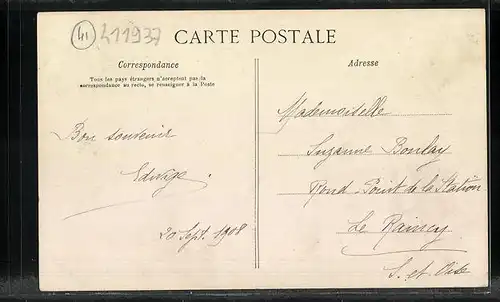 41 411937
CARTE POSTALE
Correspondance
Tous les pays étrangers n'acceptent pas la
correspondance au recto, se renseigner à la Poste
Bon souvenir
Edwige
20 Sept. 1908
Adresse
Mademoiselle
Suzanne Boulay
Rond-Point de la Station
Le Raincy
S. et Oise